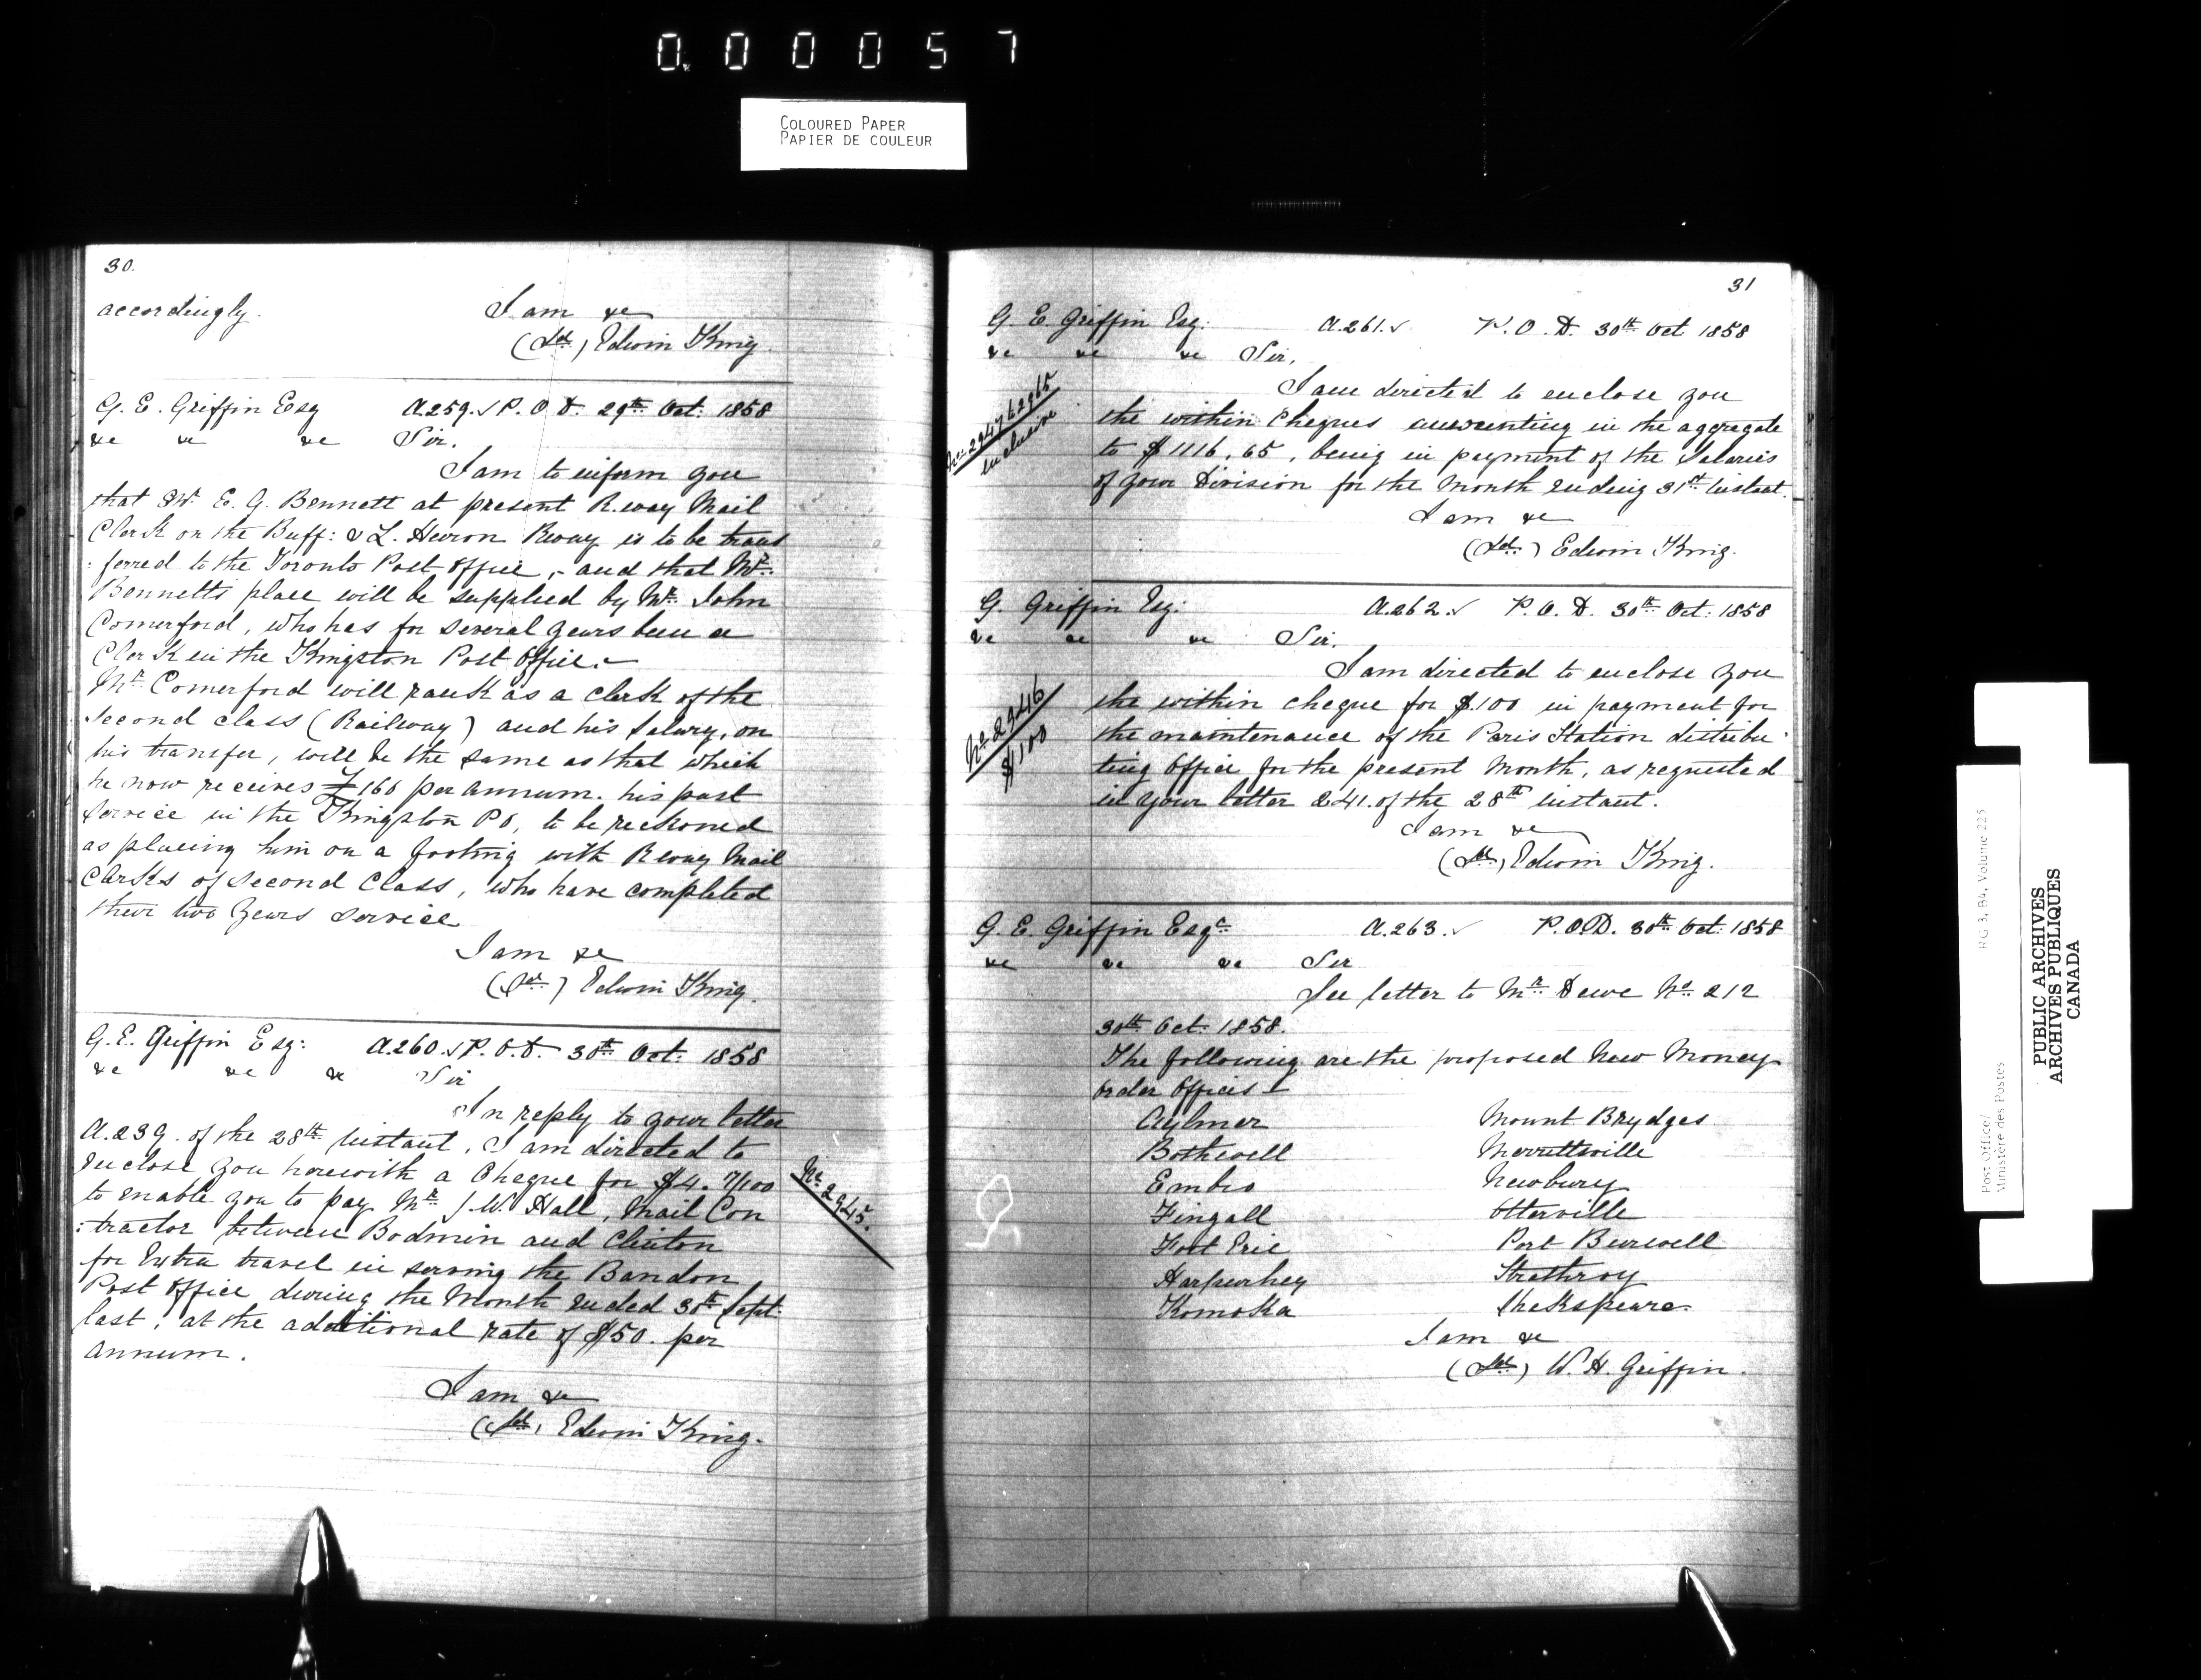 0.00057
COLOURED PAPER
PAPIER DE COULEUR
30.
accordingly. I am &c
(Sd.) Edwin King.
G. E. Griffin Esq A.259. ✓ P. O. D. 29th Oct: 1858
&c &c &c Sir.
I am to inform you
that Mr. E. G. Bennett at present R.way Mail
Clerk on the Buff: & L. Huron Rway is to be trans
:ferred to the Toronto Post Office, - and that Mr.
Bennetts place will be supplied by Mr. John
Comerford, who has for several years been a
Clerk in the Kingston Post Office. -
Mr. Comerford will rank as a clerk of the
second class (Railway) and his salary, on
his transfer, will be the same as that which
he now receives £160 per annum. his past
service in the Kingston P O, to be reckoned
as placing him on a footing with Rway Mail
Clerks of second Class, who have completed
their two years service
I am &c
(Sd.) Edwin King.
G. E. Griffin Esq: A.260. ✓ P. O. D. 30th Oct: 1858
&c &c &c Sir
In reply to your letter
A.239. of the 28th instant, I am directed to
enclose you herewith a Cheque for $4. 7/100
to enable you to pay Mr. J. W. Hall, Mail Con
:tractor between Bodmin and Clinton
for Extra travel in serving the Bandon
Post Office during the Month ended 30th Sept:
last, at the additional rate of $50. per
annum.
No. 2945.
I am &c
(Sd.) Edwin King.
31
G. E. Griffin Esq: A.261. ✓ P. O. D. 30th Oct 1858
&c &c &c Sir,
I am directed to enclose you
the within Cheques amounting in the aggregate
to $1116,65, being in payment of the Salaries
of your Division for the Month ending 31st instant.
Nos. 2947 to 2965
inclusive
I am &c
(Sd.) Edwin King.
G. Griffin Esq: A.262. ✓ P. O. D. 30th Oct: 1858
&c &c &c Sir.
I am directed to enclose you
the within cheque for $.100 in payment for
the maintenance of the Paris Station distribu:
ting Office for the present Month, as requested
in your letter 241. of the 28th instant.
No. 2946
$100
I am &c
(Sd.) Edwin King.
G. E. Griffin Esqe A.263. ✓ P.O.D. 30th Oct: 1858
&c &c &c Sir
See letter to Mr. Dewe No. 212
30th Oct. 1858.
The following are the proposed New Money
order Offices -
Aylmer Mount Brydges
Bothwell Merrittsville
Embro Newbury
Fingall Otterville
Fort Erie Port Burwell
Harpurhey Strathroy
Komoka Shakspeare.
I am &c
(Sd.) W. H. Griffin.
Post Office/ RG 3, B4, Volume 225
Ministère des Postes
PUBLIC ARCHIVES
ARCHIVES PUBLIQUES
CANADA